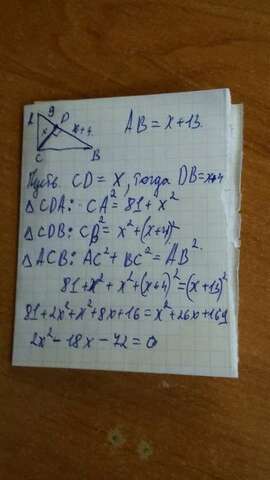 A 9 D x+4
x
C B
AB = x+13.
Пусть CD = x, тогда DB=x+4
△CDA: CA² = 81 + x²
△CDB: CB² = x² + (x+4)²
△ACB: AC² + BC² = AB².
81 + x² + x² + (x+4)² = (x+13)²
81 + 2x² + x² + 8x + 16 = x² + 26x + 169
2x² - 18x - 72 = 0